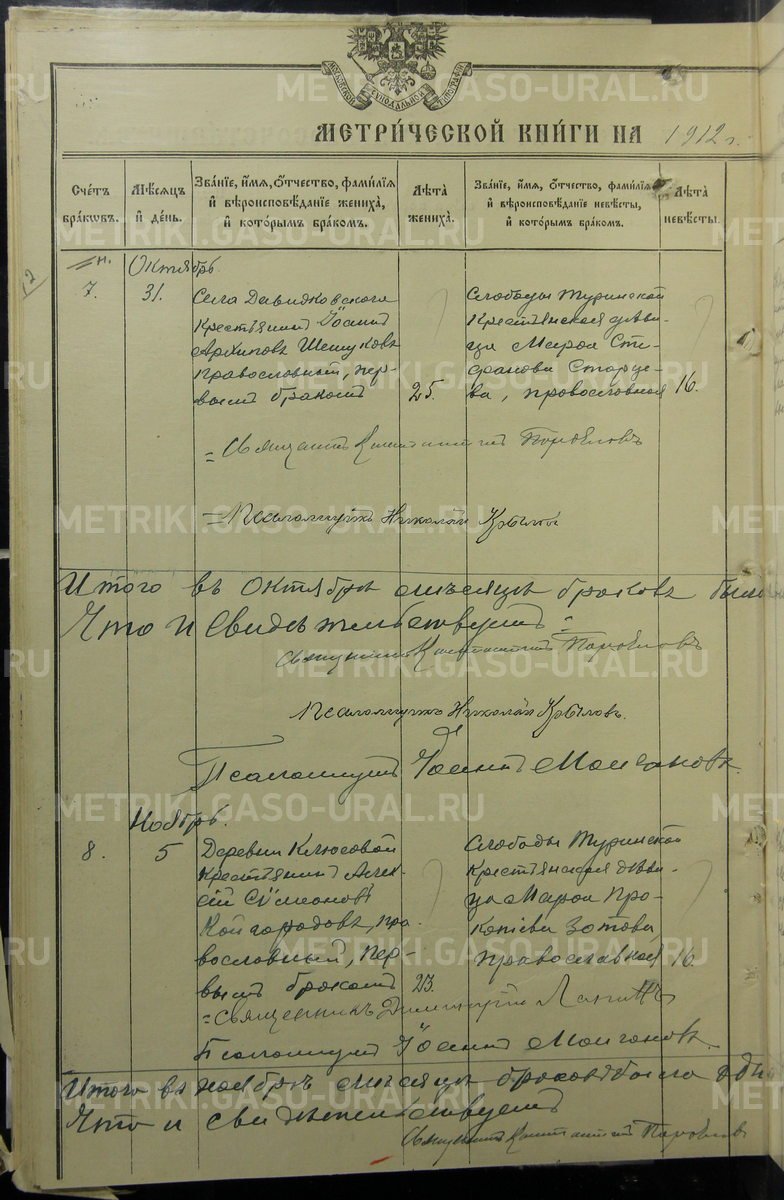 МОСКОВСКОЙ СУНОДАЛЬНОЙ ТИПОГРАФІИ
МЕТРИ́ЧЕСКОЙ КНИ́ГИ НА 1912 г.
Сче́тъ бра́кѡвъ.
Мѣ́сяцъ и҆ де́нь.
Зва́нїе, и҆́мя, ѻ҆́тчество, фамѝлїя и҆ вѣроисповѣ́данїе жениха̀, и҆ кото́рымъ бра́комъ.
Лѣ́та жениха̀.
Зва́нїе, и҆́мя, ѻ҆́тчество, фамѝлїя и҆ вѣроисповѣ́данїе невѣ́сты, и҆ кото́рымъ бра́комъ.
Лѣ́та невѣ́сты.
Октябрь
7.
31.
Села Давидковскаго
крестьянинъ Іоаннъ
Архиповъ Шешуковъ
православный, пер-
вымъ бракомъ
25.
Слободы Туринской
крестьянская дѣви-
ца Марѳа Сте-
фанова Старце-
ва, православная
16.
Священникъ Константинъ
Псаломщикъ Николай Крыловъ
Итого въ октябрѣ мѣсяцѣ браковъ было
Что и свидѣтельствуемъ
Священникъ Константинъ
Псаломщикъ Николай Крыловъ.
Псаломщикъ Іоаннъ Молчановъ.
Ноябрь.
8.
5
Деревни Клюсовой
крестьянинъ Алек-
сѣй Сѵмеоновъ
Койгородовъ, пра-
вославный, пер-
вымъ бракомъ
23.
Слободы Туринской
крестьянская дѣви-
ца Марѳа Про-
копіева Зотова,
православная
16.
Священникъ Димитрій
Псаломщикъ Іоаннъ Молчановъ.
Итого въ ноябрѣ мѣсяцѣ браковъ было
Что и свидѣтельствуемъ
Священникъ Константинъ
METRIKI.GASO-URAL.RU